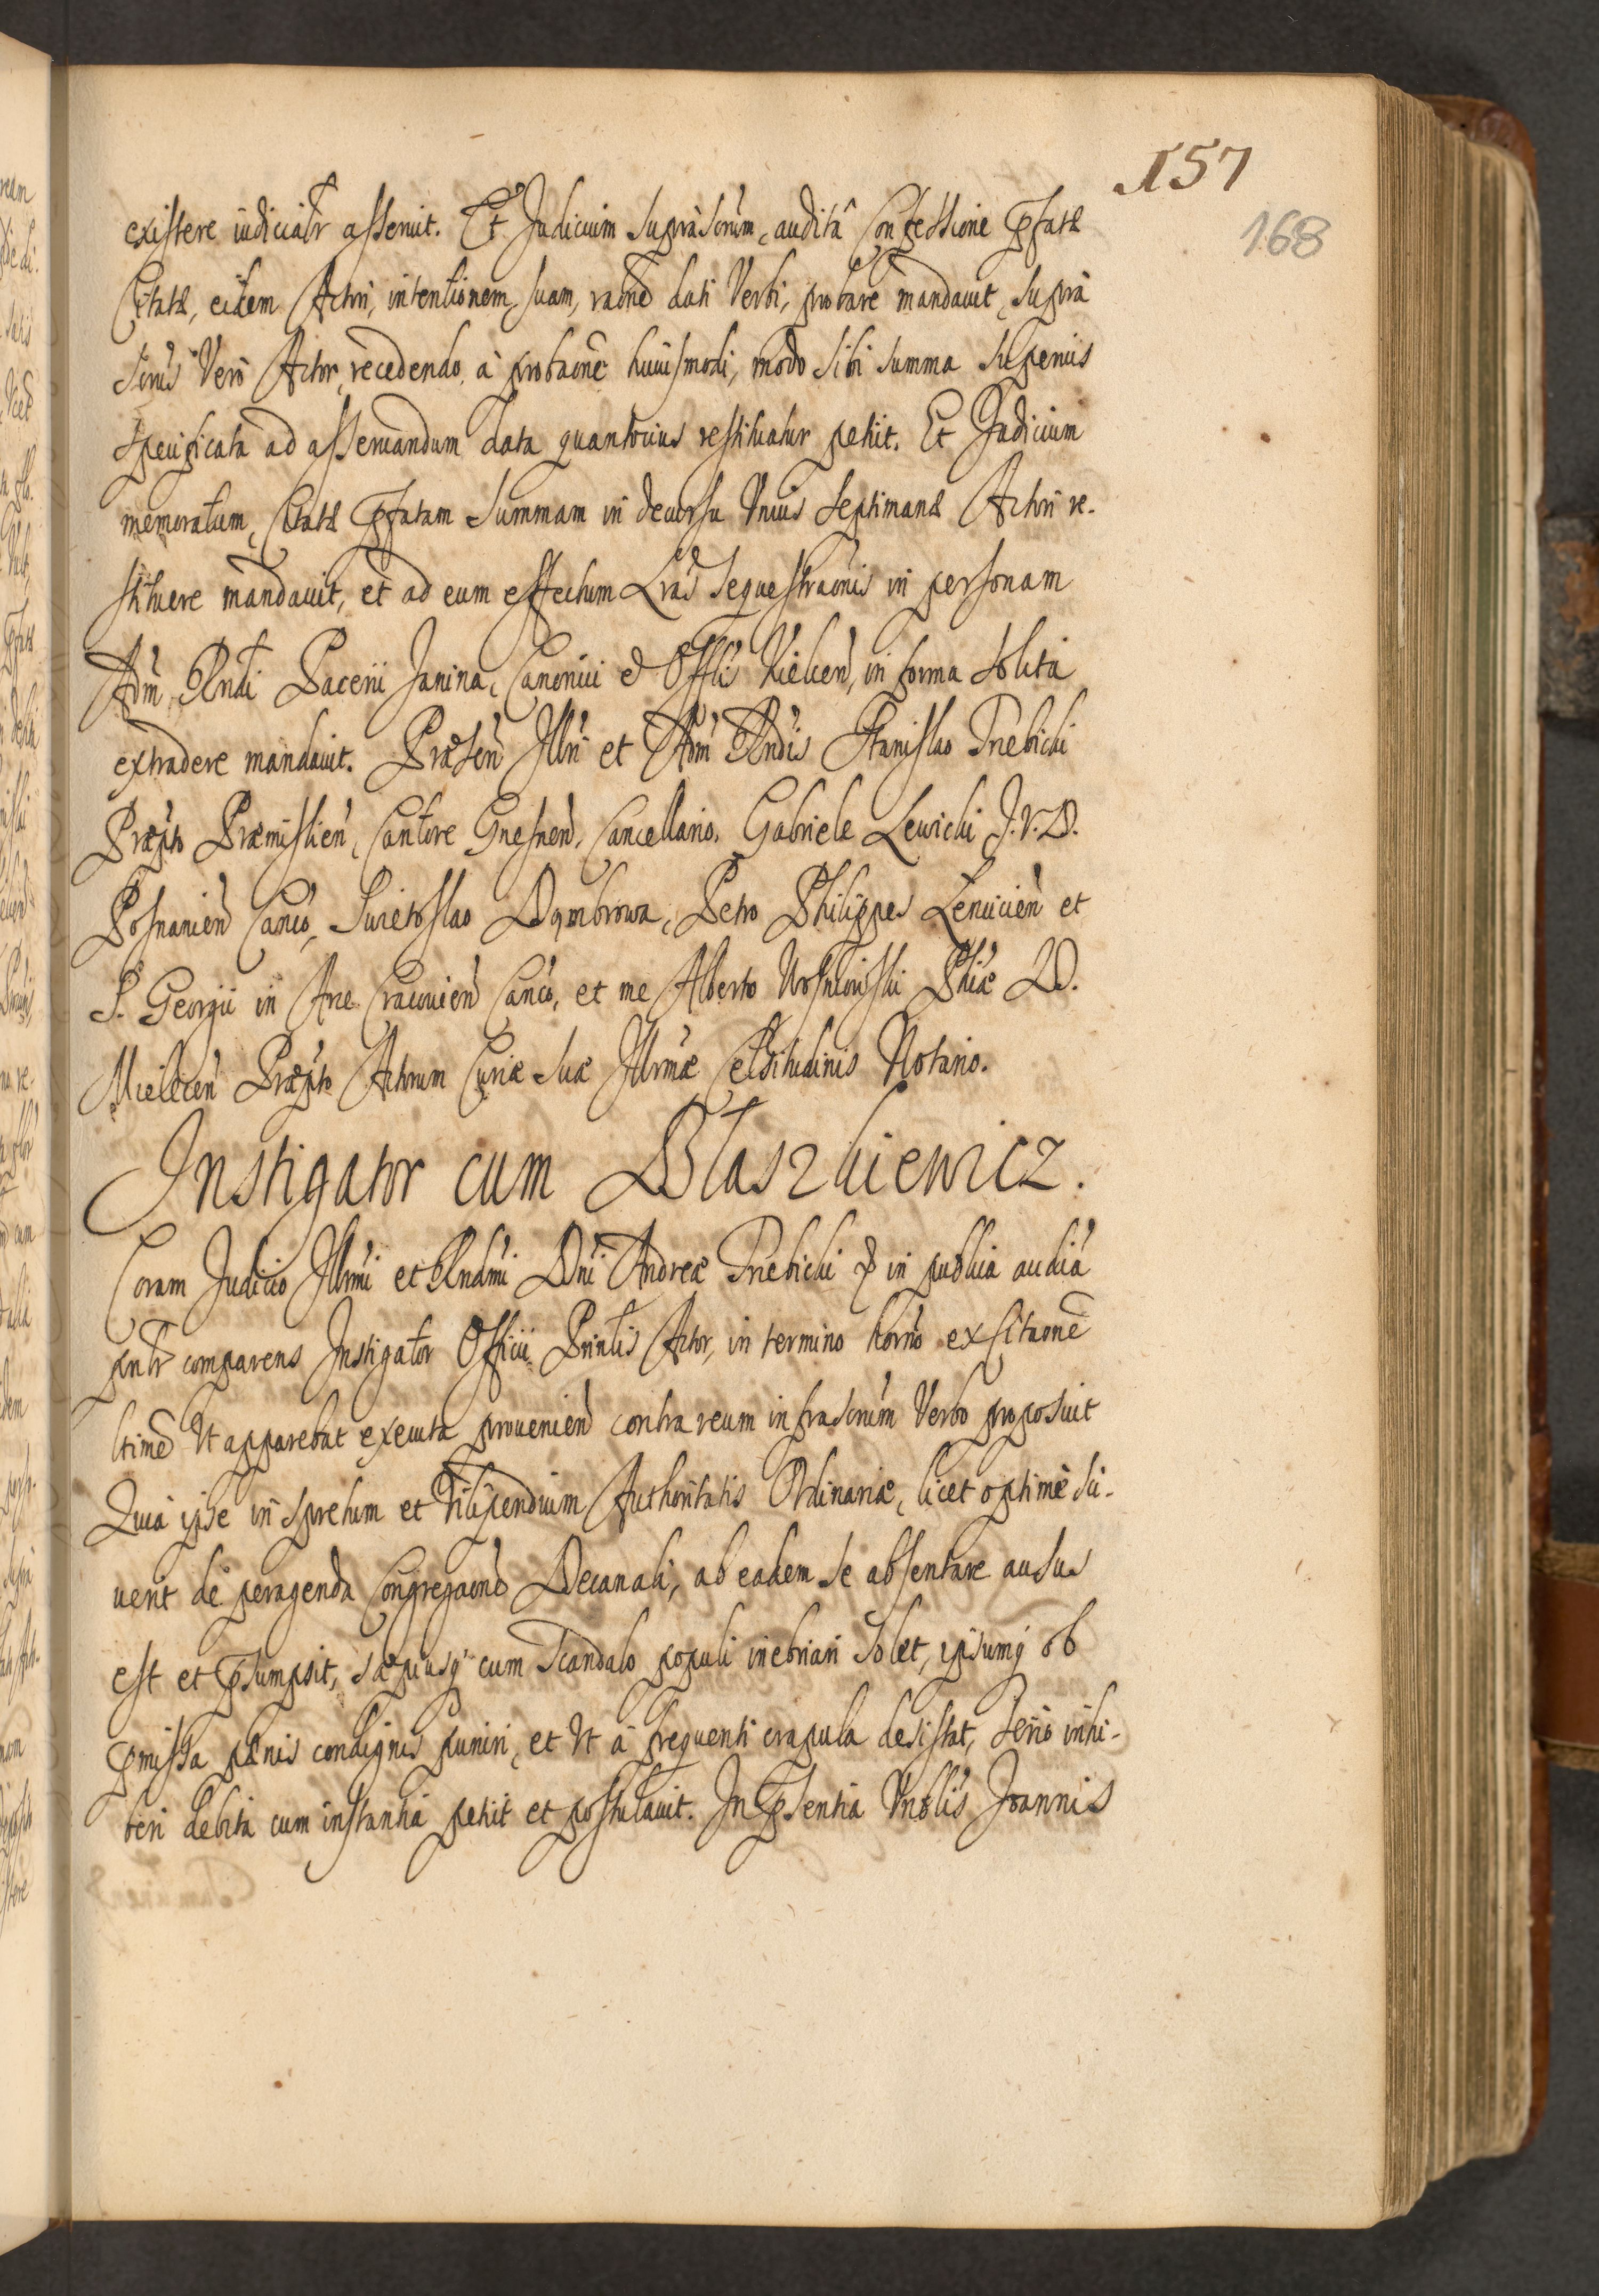 157
168
existere iudicialr asseruit. Et Judicium suprascrum, auditâ Confessione pfatæ
Citatæ, eidem Actori, intentionem suam, raone dati Verbi, probare mandauit, supra
scrus Vero Actor, recedendo à probaone huiusmodi, modo sibi summa superius
specificata ad asseruandum data quantocius restituatur petiit. Et Judicium
memoratum, Citatæ pfatam summam in decursu Vnius septimanæ Actori re-
stituere mandauit, et ad eum effectum Lras sequestraonis in personam
Adm Rndi Pacerii Janina, Canonici et Offlis Kielcen, in forma solita
extradere mandauit. Præsen Illri et Adm Rndis Stanislao Trebicki
Præpto Præmislien, Cantore Gnesnen, Cancellario. Gabriele Lewicki J.V.D.
Posnanien Canco, Swietoslao Dombrowa, Petro Philippes Lencicien et
S. Georgii in Arce Cracouien Canco, et me Alberto Phiæ D.
Mielicen Præpto Actorum Curiæ suæ Illrmæ Celsitudinis Notario.
Instigator cum Błaszkiewicz.
Coram Judicio Illrmi et Rndmi Dni Andreæ Trebicki & in publica audia
pntr comparens Instigator Officii Pnntis Actor, in termino horno ex Citaone
ltime Vt apparebat executa prouenien contra reum infrascrum Verbo proposuit
Quia ipse in spretum et Vilipendium Authoritatis Ordinariæ, licet optimè sci-
uerit de peragenda Congregaone Decanali, ab eadem se absentare ausus
est et psumpsit, sæpiusq cum scandalo populi inebriari solet, ipsumq ob
pmissa pænis condignis puniri, et Vt à frequenti crapula desistat, serio inhi-
beri debita cum instantia petiit et postulauit. In psentia Vnblis Joannis